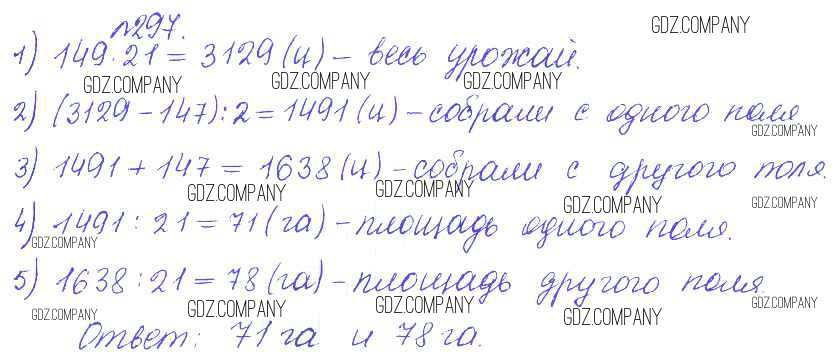 №297.
GDZ.COMPANY
1) 149·21 = 3129 (ц) – весь урожай.
GDZ.COMPANY GDZ.COMPANY GDZ.COMPANY
2) (3129 – 147) : 2 = 1491 (ц) – собрали с одного поля
GDZ.COMPANY
3) 1491 + 147 = 1638 (ц) – собрали с другого поля.
GDZ.COMPANY GDZ.COMPANY GDZ.COMPANY GDZ.COMPANY
4) 1491 : 21 = 71 (га) – площадь одного поля.
GDZ.COMPANY
5) 1638 : 21 = 78 (га) – площадь другого поля
GDZ.COMPANY GDZ.COMPANY GDZ.COMPANY GDZ.COMPANY GDZ.COMPANY
Ответ: 71 га и 78 га.